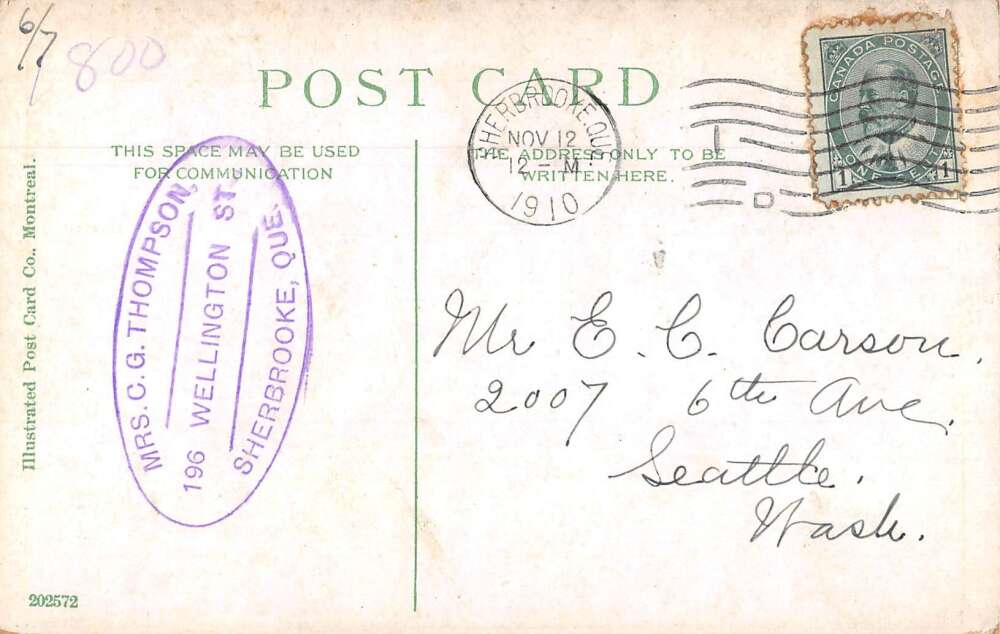 6/7
800
POST CARD
THIS SPACE MAY BE USED
FOR COMMUNICATION
THE ADDRESS ONLY TO BE
WRITTEN HERE.
SHERBROOKE, QUE.
NOV 12
12 - M
1910
I
D
CANADA POSTAGE
ONE CENT
1 1
Illustrated Post Card Co., Montreal.
MRS. C. G. THOMPSON,
196 WELLINGTON ST.
SHERBROOKE, QUE.
Mr E. C. Carson.
2007 6th Ave.
Seattle.
Wash.
202572